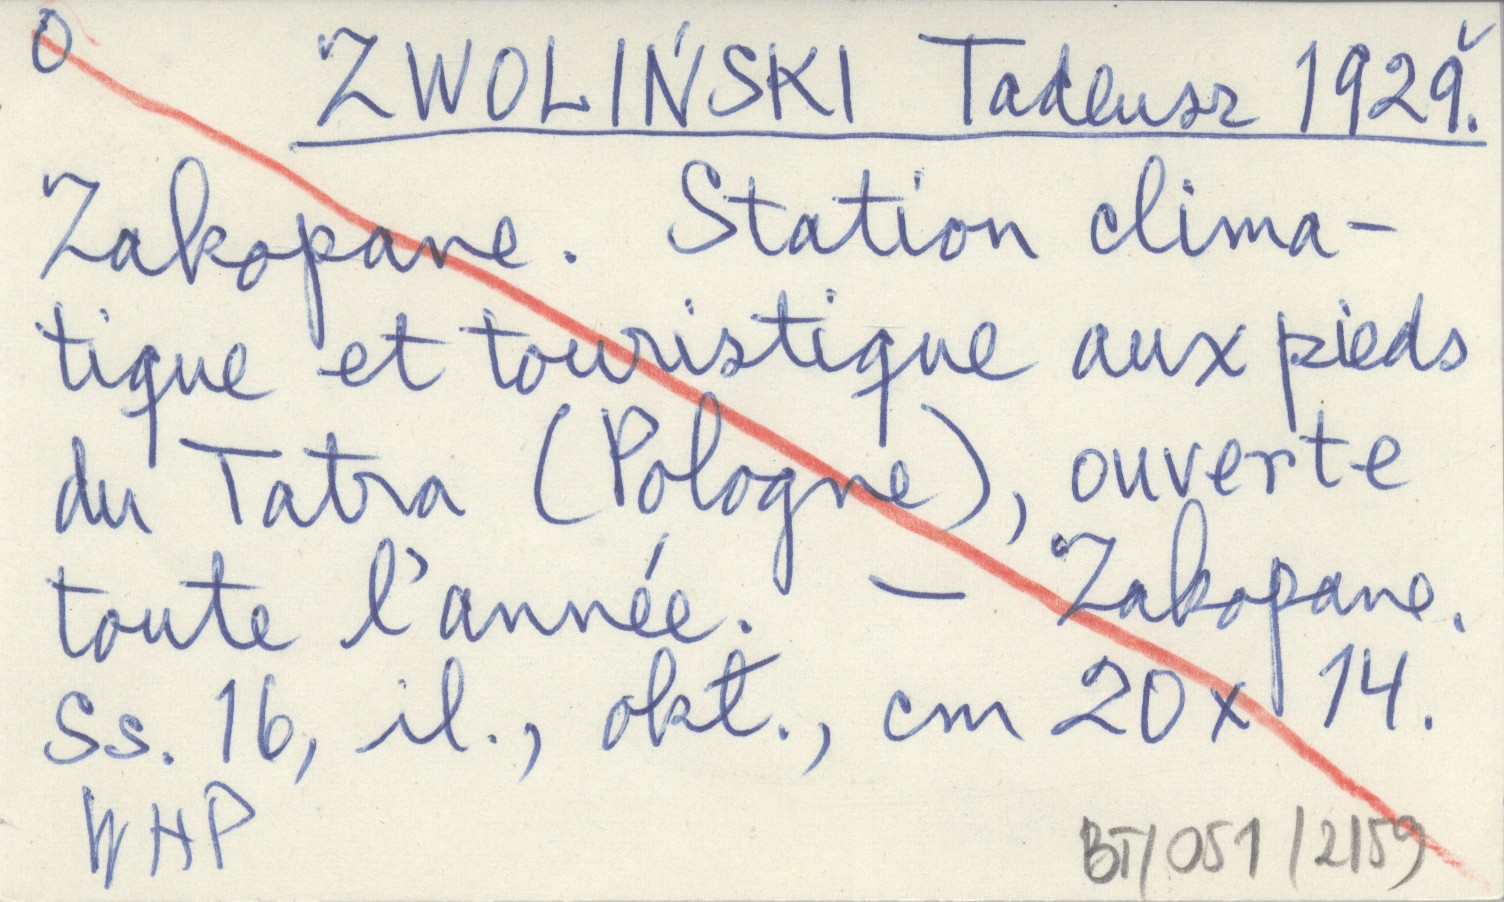 O
ZWOLIŃSKI Tadeusz 1929.
Zakopane. Station clima-
tique et touristique aux pieds
du Tatra (Pologne), ouverte
toute l'année. — Zakopane.
Ss. 16, il., okt., cm 20 x 14.
WHP
BT/051/2159